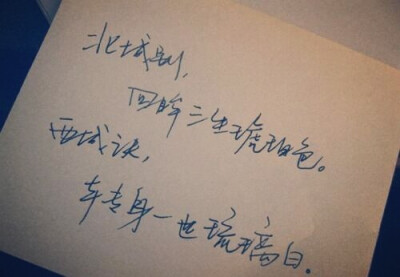 北城别,
回眸三生琥珀色。
西城诀,
转身一世琉璃白.